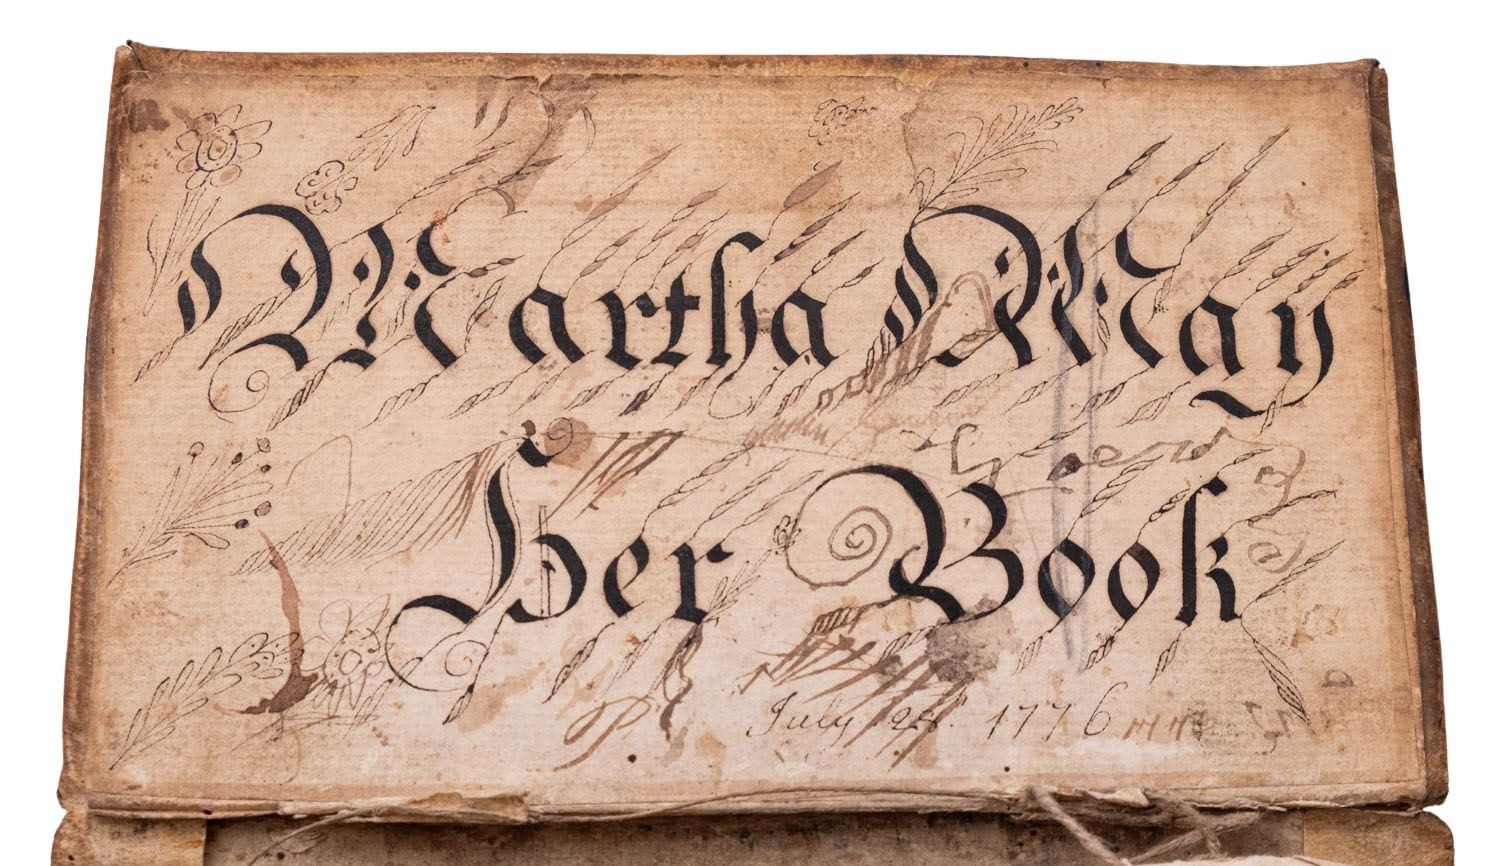 Martha May
Her Book
July 28. 1776